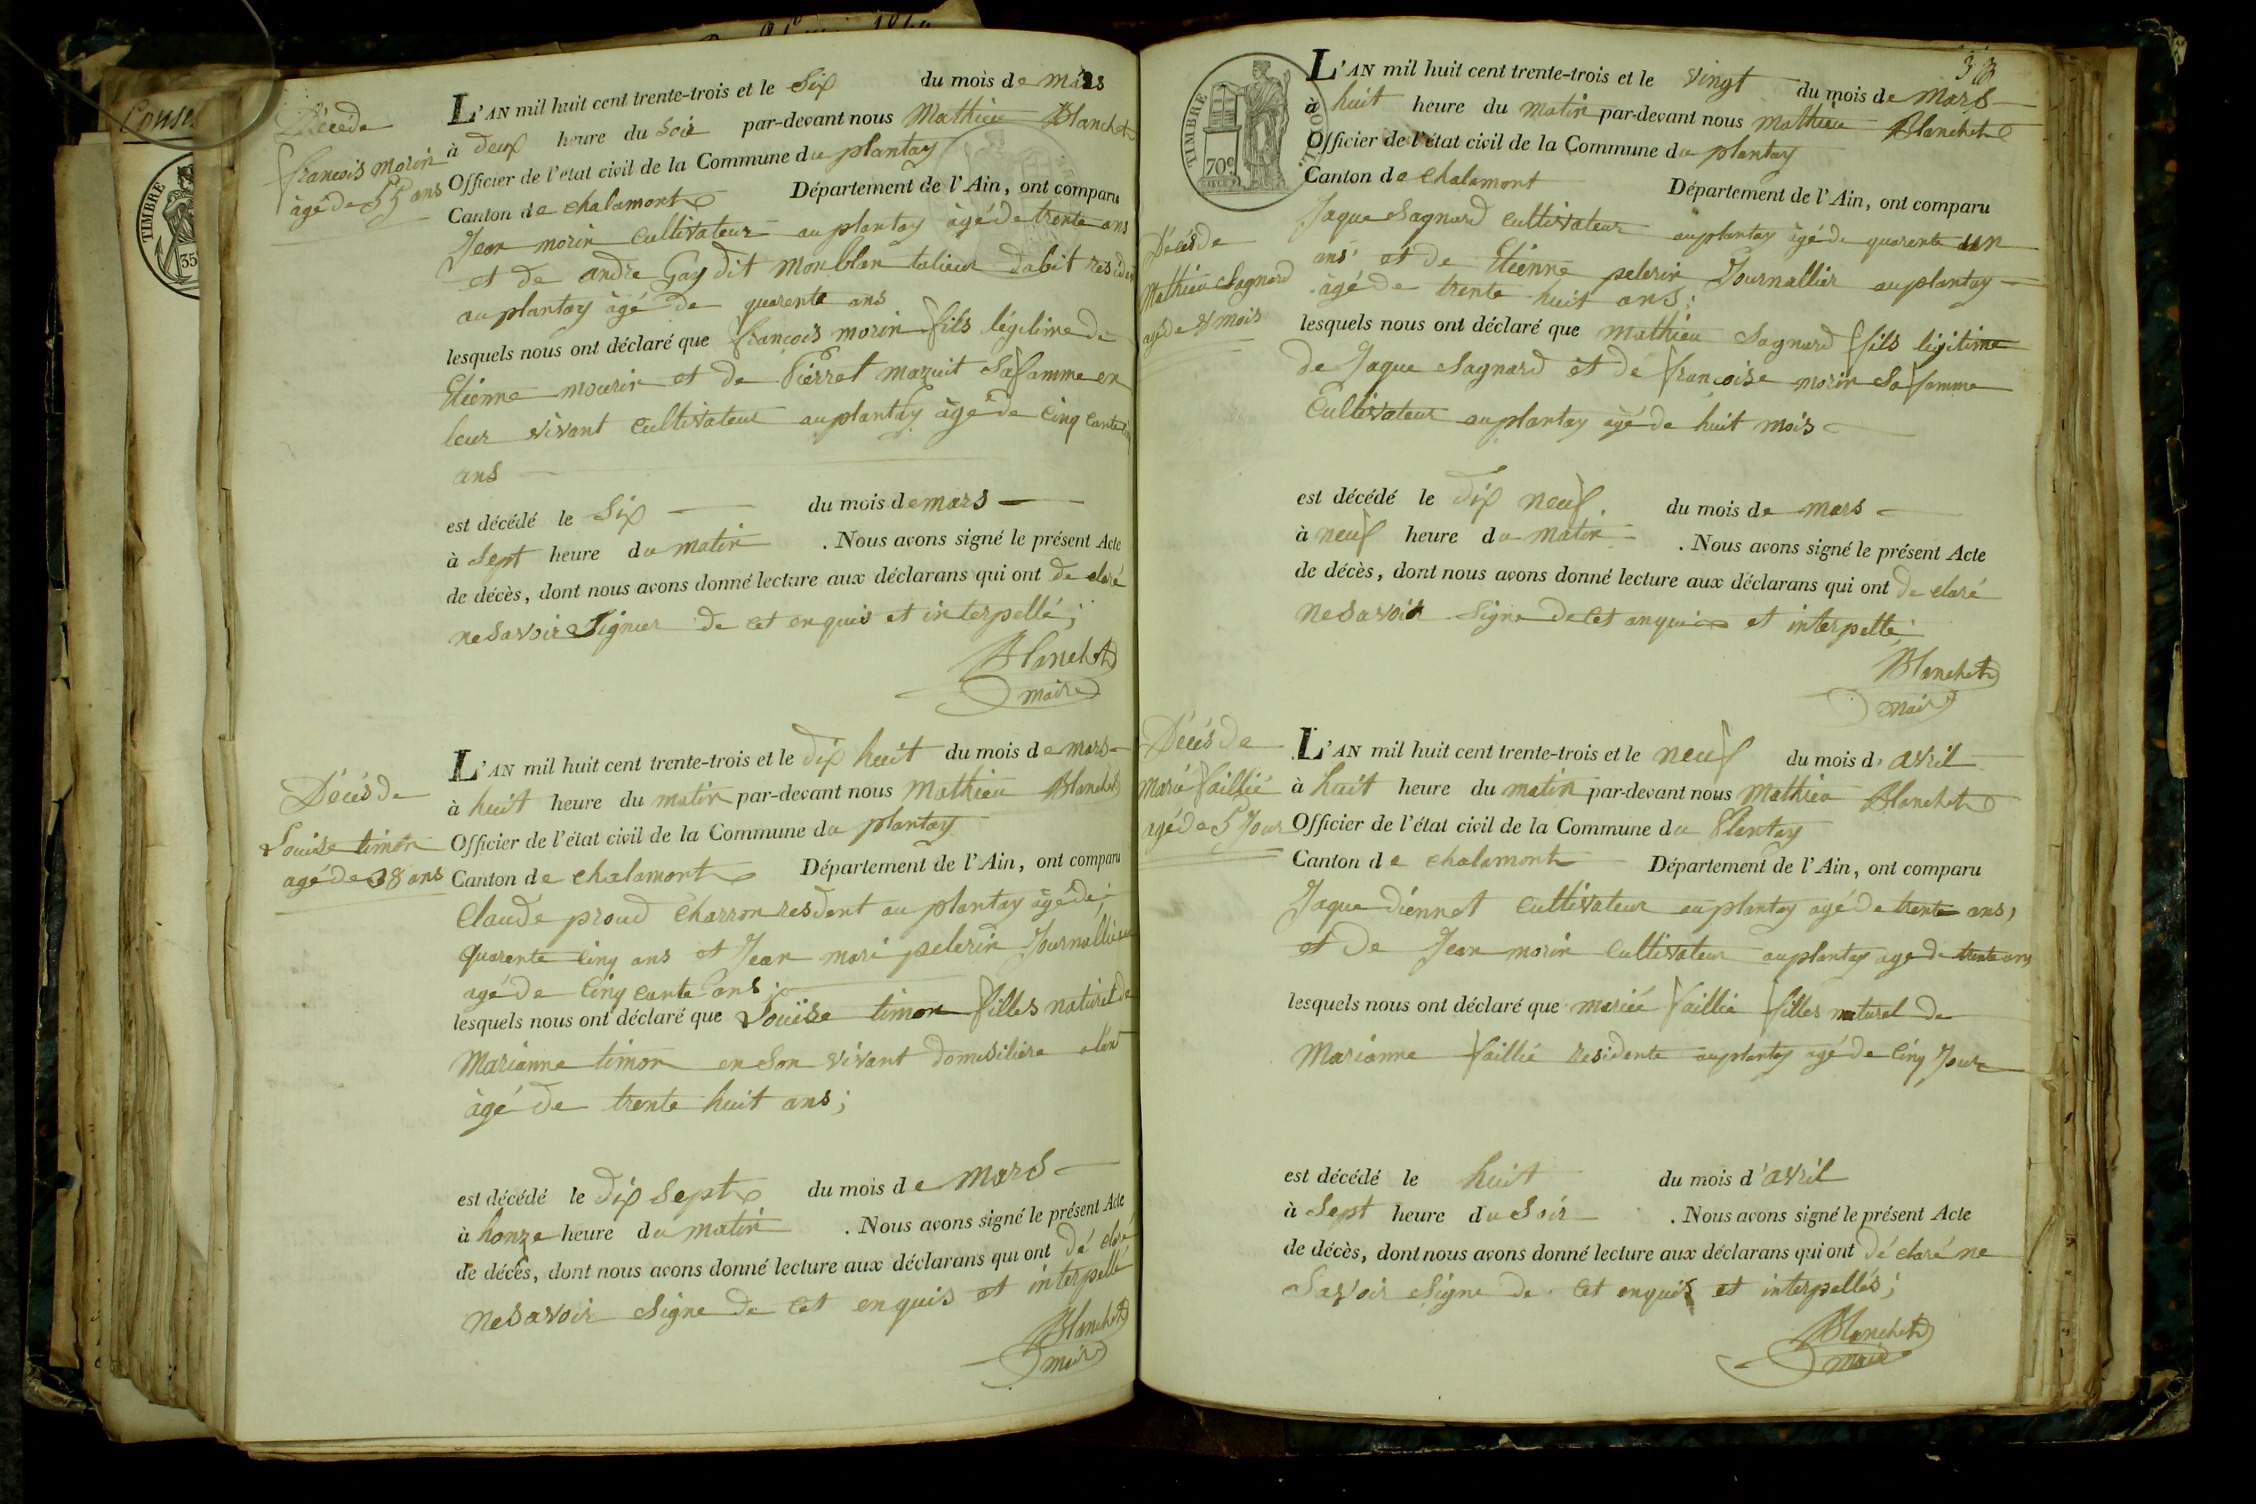 Conse
TIMBRE
35
Décé de
francois morin
âgé de 55 ans
L'AN mil huit cent trente-trois et le Six du mois de mars
à deux heure du Soir par-devant nous Mathieu Blanchet
Officier de l'état civil de la Commune du plantay
Canton de chalamont Département de l'Ain, ont comparu
Jean morin cultivateur au plantay âgé de trente ans
et de andré Gay dit monblan talieur dabit
au plantay âgé de quarente ans
lesquels nous ont déclaré que francois morin fils légitime de
Etienne mourin et de Pierret Sa famme en
leur vivant cultivateur au plantay âgé de cinq cante
ans
est décédé le Six du mois de mars
à Sept heure du matin . Nous avons signé le présent Acte
de décès, dont nous avons donné lecture aux déclarans qui ont de claré
ne Savoir Signer de cet enquis et interpellé;
Blanchet
maire
Décés de
Louise timon
agé de 38 ans
L'AN mil huit cent trente-trois et le dix huit du mois de mars
à huit heure du matin par-devant nous Mathieu Blanchet
Officier de l'état civil de la Commune du plantay
Canton de chalamont Département de l'Ain, ont comparu
Claude proud Charron resdent au plantay âgé de;
quarente cinq ans et Jean mari pelerin Journallier
agé de Cinq cante ans;
lesquels nous ont déclaré que Louise timon filles naturel de
Marianne timon en Son vivant
âgé de trente huit ans;
est décédé le dix Sept du mois de mars
à honze heure du matin . Nous avons signé le présent Acte
de décès, dont nous avons donné lecture aux déclarans qui ont dé claré
ne Savoir Signe de cet enquis et interpellé
Blanchet
maire
TIMBRE
70c
L'AN mil huit cent trente-trois et le vingt du mois de Mars
à huit heure du matin par-devant nous mathieu Blanchet
Officier de l'état civil de la Commune du plantay
Canton de chalamont Département de l'Ain, ont comparu
Décés de
Mathieu Sagnard
agé de 8 mois
Jaque Sagnard cultivateur au plantay âgé de quarente un
ans et de Etienne pelerin Journallier au plantay
âgé de trente huit ans;
lesquels nous ont déclaré que mathieu Sagnard fils légitime
de Jaque Sagnard et de francoise morin Sa famme
Cultivateur au plantay agé de huit mois
est décédé le dix neuf du mois de mars
à neuf heure du matin . Nous avons signé le présent Acte
de décès, dont nous avons donné lecture aux déclarans qui ont de claré
ne Savoir Signe de cet anquis et interpellé;
Blanchet
maire
Décés de
Marié faillié
agé de 5 Jour
L'AN mil huit cent trente-trois et le neuf du mois d' avril
à huit heure du matin par-devant nous Mathieu Blanchet
Officier de l'état civil de la Commune du Plantay
Canton de chalamont Département de l'Ain, ont comparu
Jaque diennet cultivateur au plantay agé de trente ans,
et de Jean morin cultivateur au plantay agé de trente ans
lesquels nous ont déclaré que mariée faillié filles naturel de
Marianne faillié residente au plantay agé de cinq Jour
est décédé le huit du mois d'avril
à Sept heure du Soir . Nous avons signé le présent Acte
de décès, dont nous avons donné lecture aux déclarans qui ont dé claré ne
Savoir Signe de cet enquis et interpellés;
Blanchet
maire